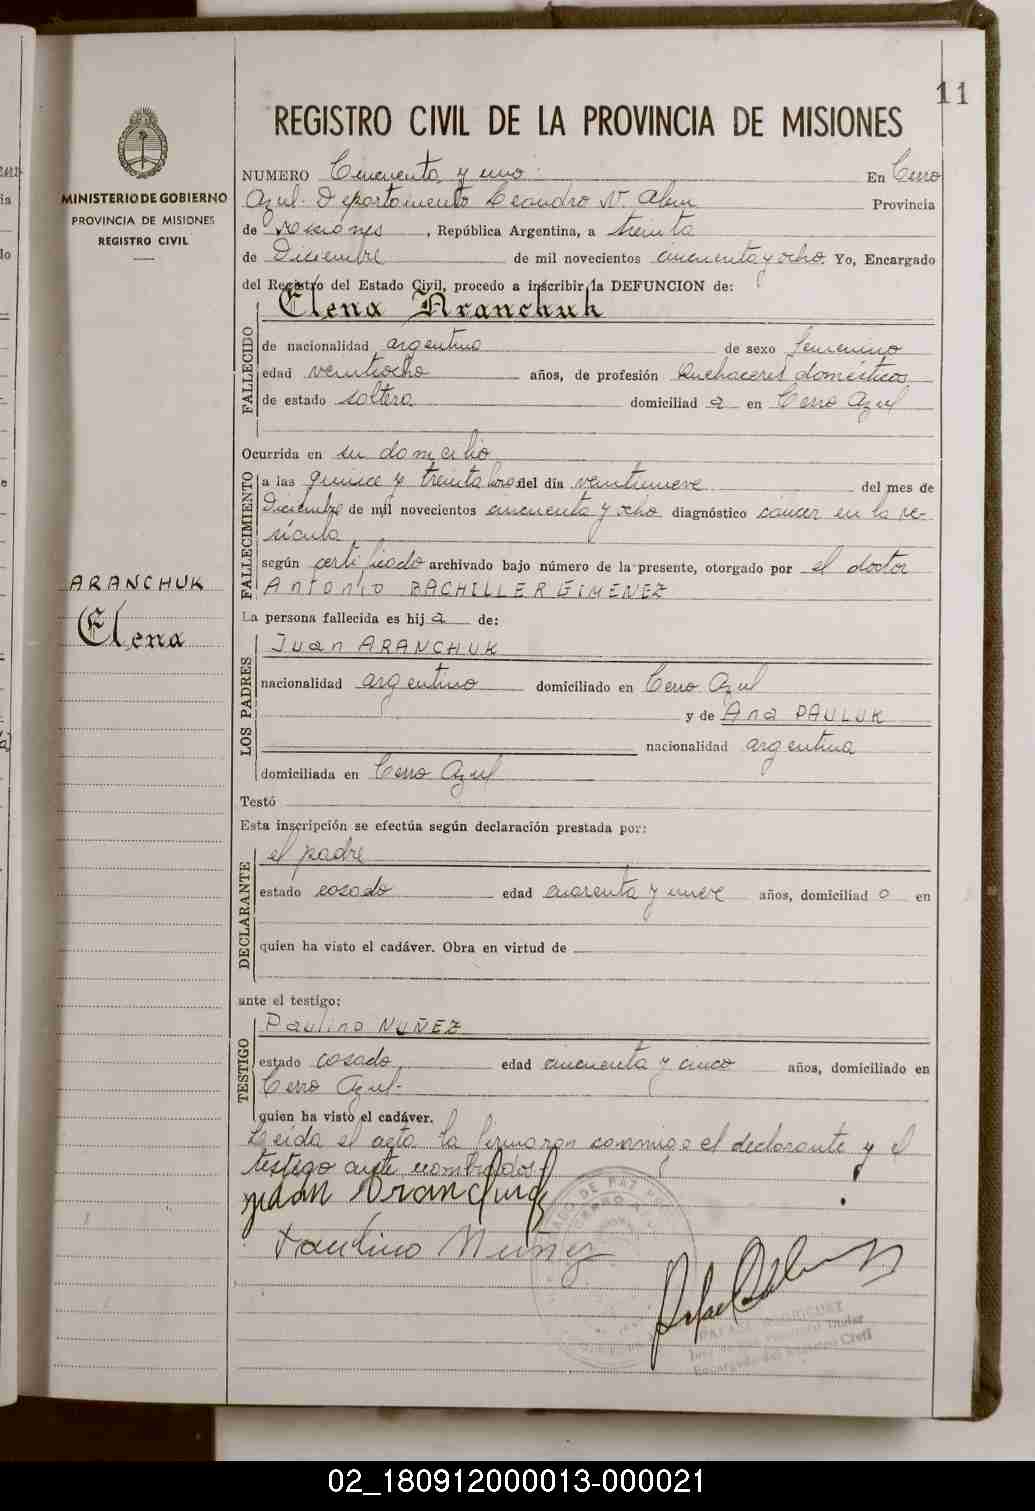 11
REGISTRO CIVIL DE LA PROVINCIA DE MISIONES
MINISTERIO DE GOBIERNO
PROVINCIA DE MISIONES
REGISTRO CIVIL
NUMERO Cincuenta y uno En Cerro
Azul. Departamento Leandro N. Alem Provincia
de Misiones, República Argentina, a treinta
de Diciembre de mil novecientos cincuenta y ocho. Yo, Encargado
del Registro del Estado Civil, procedo a inscribir la DEFUNCION de:
Elena Aranchuk
FALLECIDO
de nacionalidad argentina de sexo femenino
edad veintiocho años, de profesión Quehaceres domésticos
de estado soltera domiciliad a en Cerro Azul
Ocurrida en su domicilio
FALLECIMIENTO
a las quince y treinta horas del día veintinueve del mes de
Diciembre de mil novecientos cincuenta y ocho diagnóstico cáncer en la ve-
sícula
según certificado archivado bajo número de la presente, otorgado por el doctor
Antonio BACHILLER GIMENEZ
ARANCHUK
Elena
La persona fallecida es hij a de:
LOS PADRES
Juan ARANCHUK
nacionalidad argentino domiciliado en Cerro Azul
y de Ana PAULUK
nacionalidad argentina
domiciliada en Cerro Azul
Testó
Esta inscripción se efectúa según declaración prestada por:
DECLARANTE
el padre
estado casado edad cuarenta y nueve años, domiciliad o en
quien ha visto el cadáver. Obra en virtud de
ante el testigo:
TESTIGO
Paulino NUÑEZ
estado casado edad cincuenta y cinco años, domiciliado en
Cerro Azul.
quien ha visto el cadáver.
Leída el acta la firmaron conmigo el declarante y el
testigo ante nombrados
Juan Aranchuk
Paulino Nuñez
Encargado del Registro Civil
02_180912000013-000021